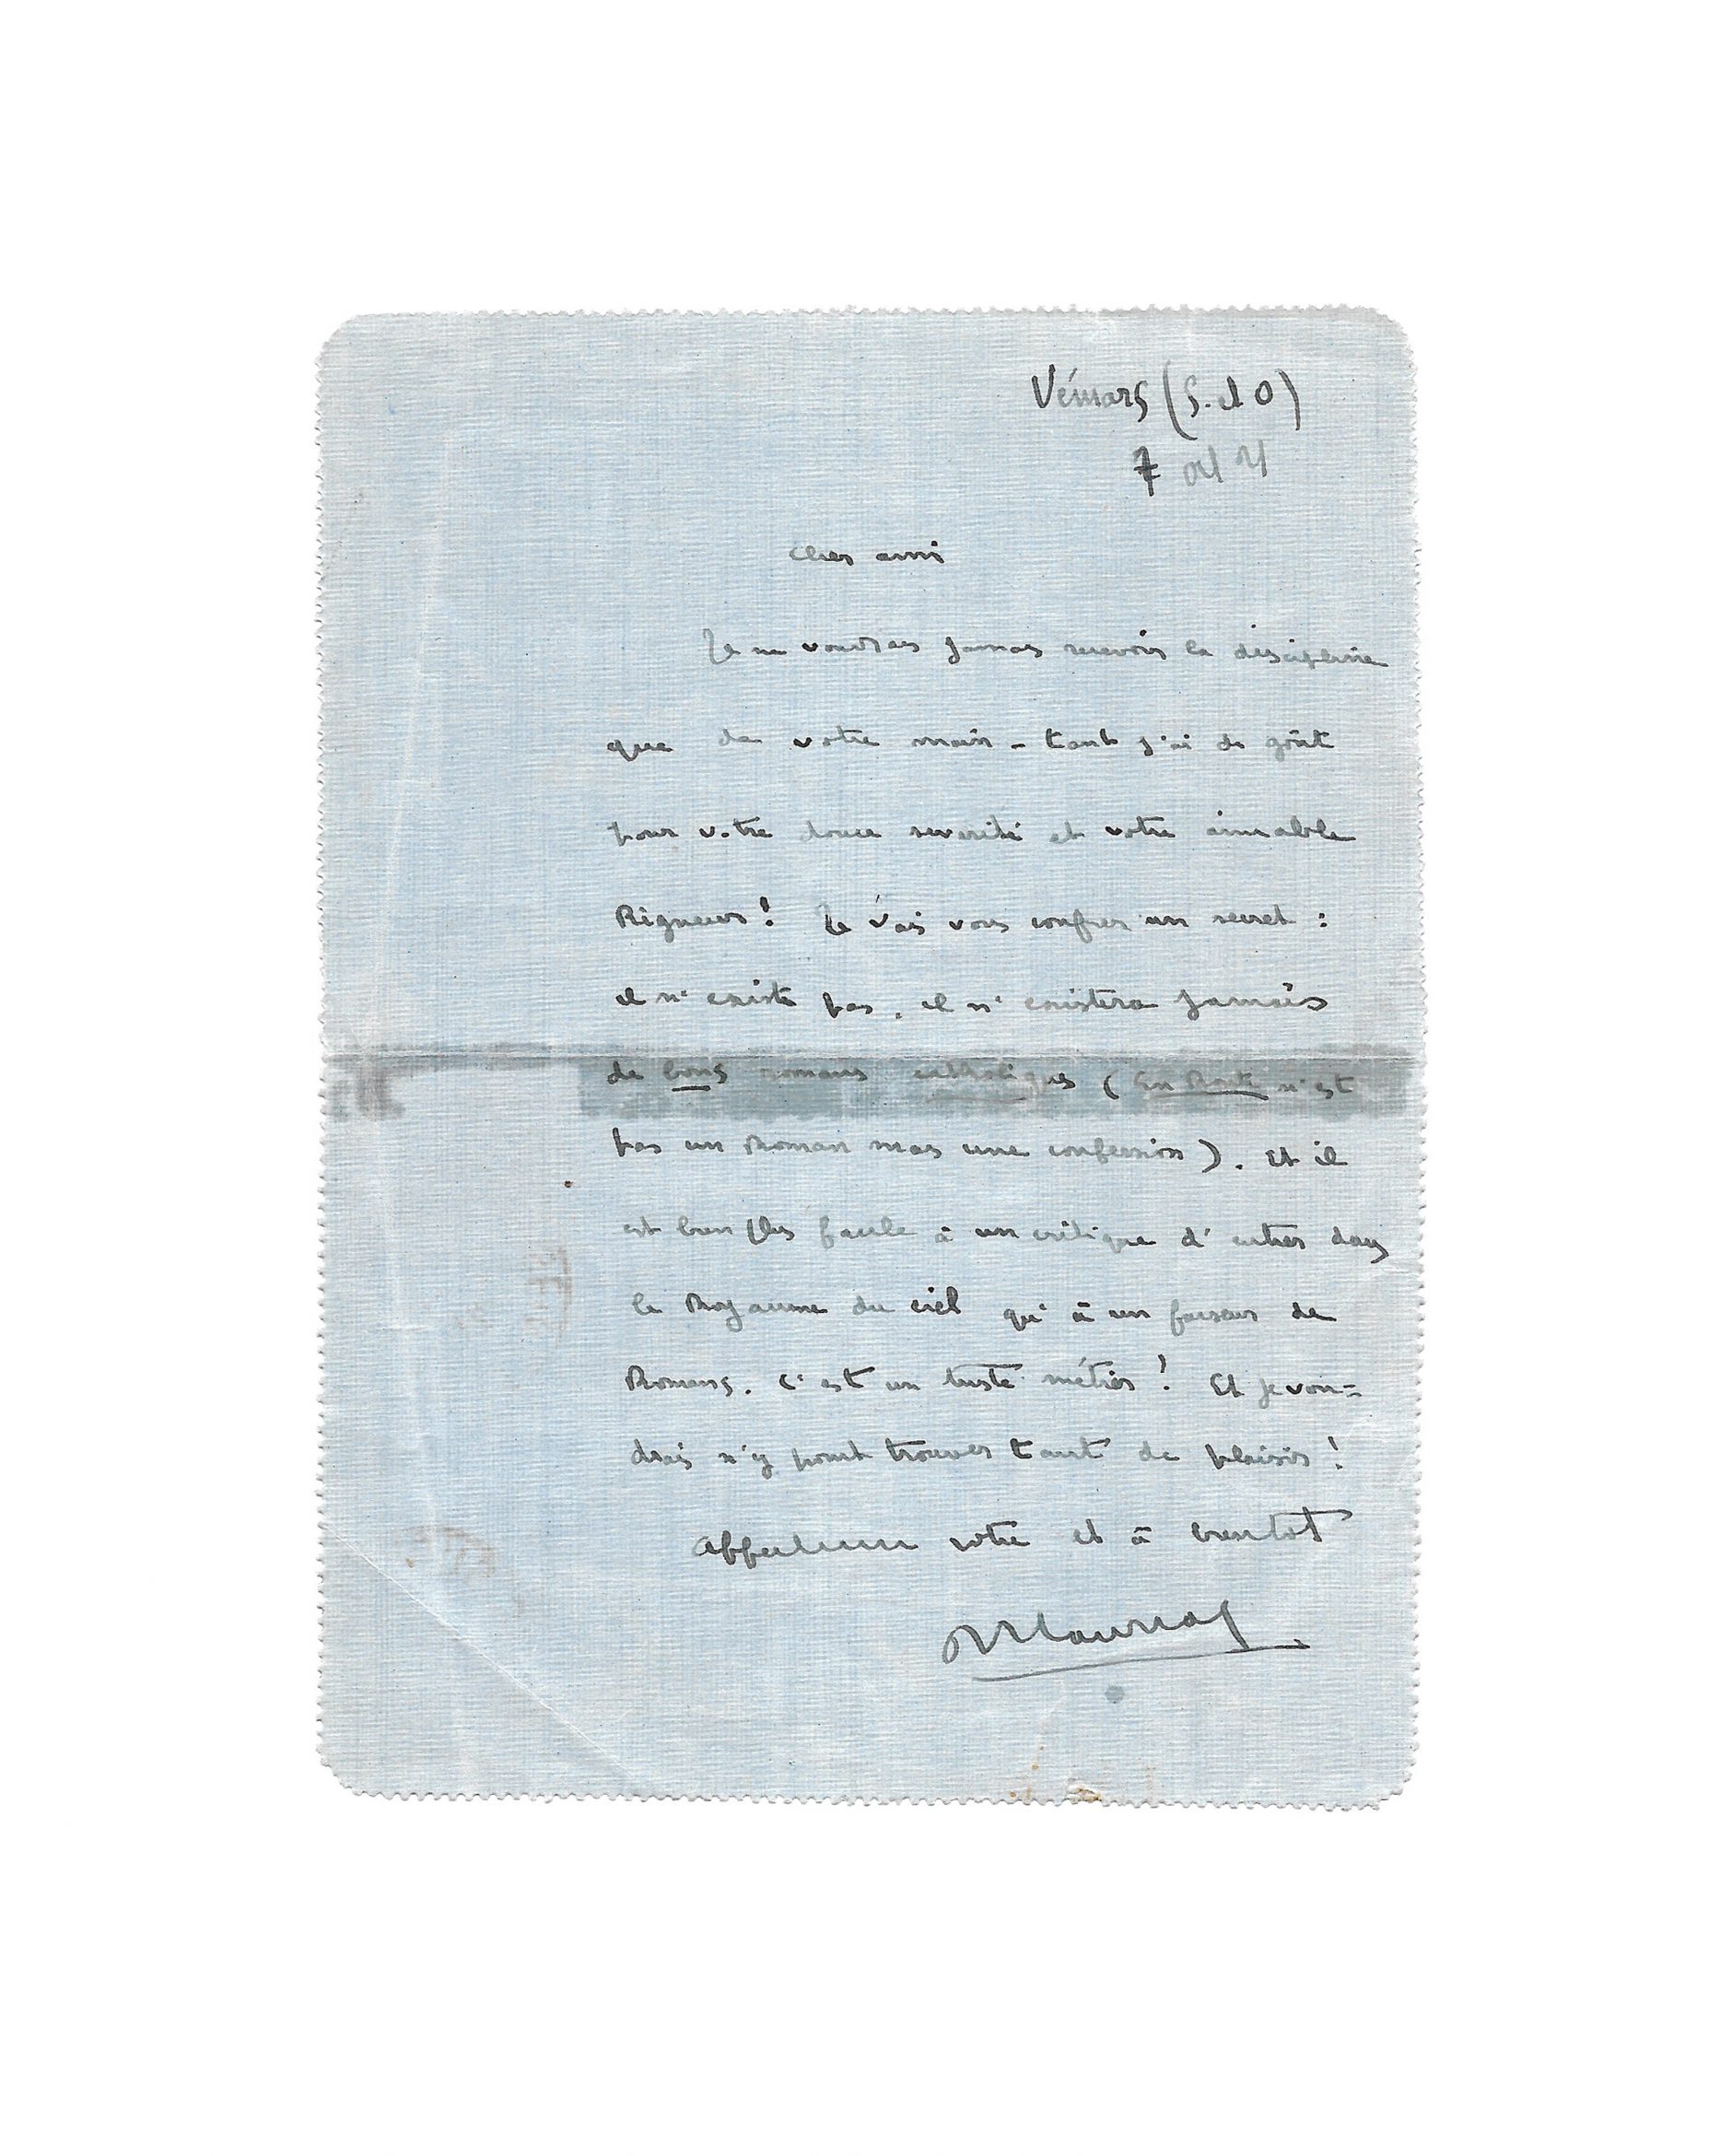 Vémars (S. et O)
7 oct 21
Cher ami
Je ne voudrais jamais recevoir la discipline
que de votre main - tant j'ai de goût
pour votre douce sévérité et votre aimable
Rigueur! Je vais vous confier un secret :
il n'existe pas, il n'existera jamais
de bons romans catholiques (En Route n'est
pas un Roman mais une confession). Et il
est bien plus facile à un critique d'entrer dans
le Royaume du ciel qu'à un faiseur de
Romans. C'est un triste métier! Et je vou=
drais n'y point trouver tant de plaisir!
votre et à bientôt
Mauriac